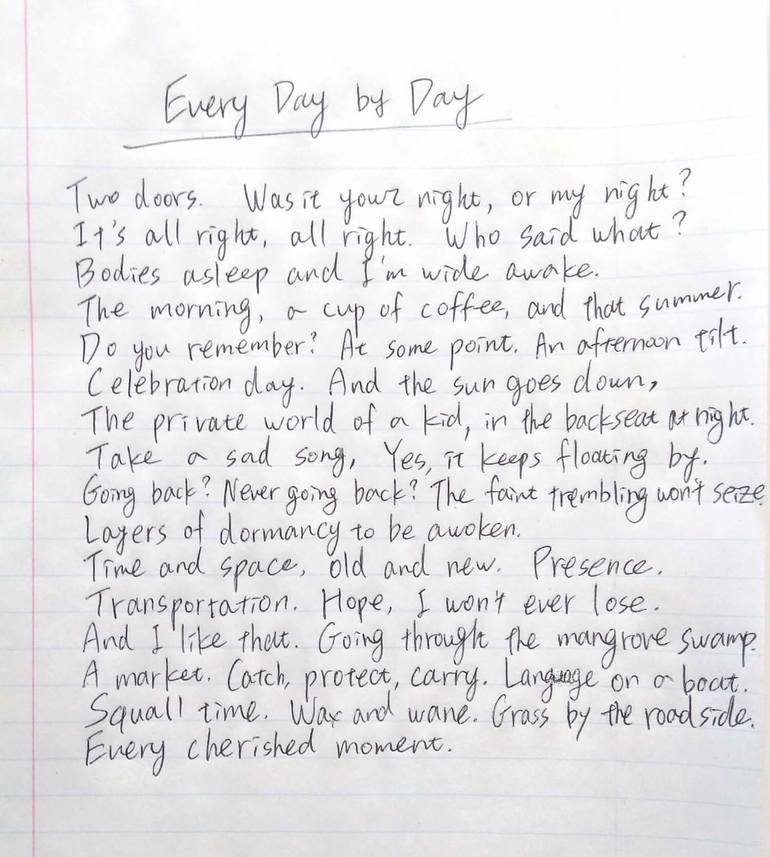 Every Day by Day
Two doors. Was it your night, or my night?
It's all right, all right. Who said what?
Bodies asleep and I'm wide awake.
The morning, a cup of coffee, and that summer.
Do you remember? At some point. An afternoon tilt.
Celebration day. And the sun goes down,
The private world of a kid, in the backseat at night.
Take a sad song, Yes, it keeps floating by.
Going back? Never going back? The faint trembling won't seize.
Layers of dormancy to be awoken.
Time and space, old and new. Presence.
Transportation. Hope, I won't ever lose.
And I like that. Going through the mangrove swamp.
A market. Catch, protect, carry. Language on a boat.
Squall time. Wax and wane. Grass by the roadside.
Every cherished moment.